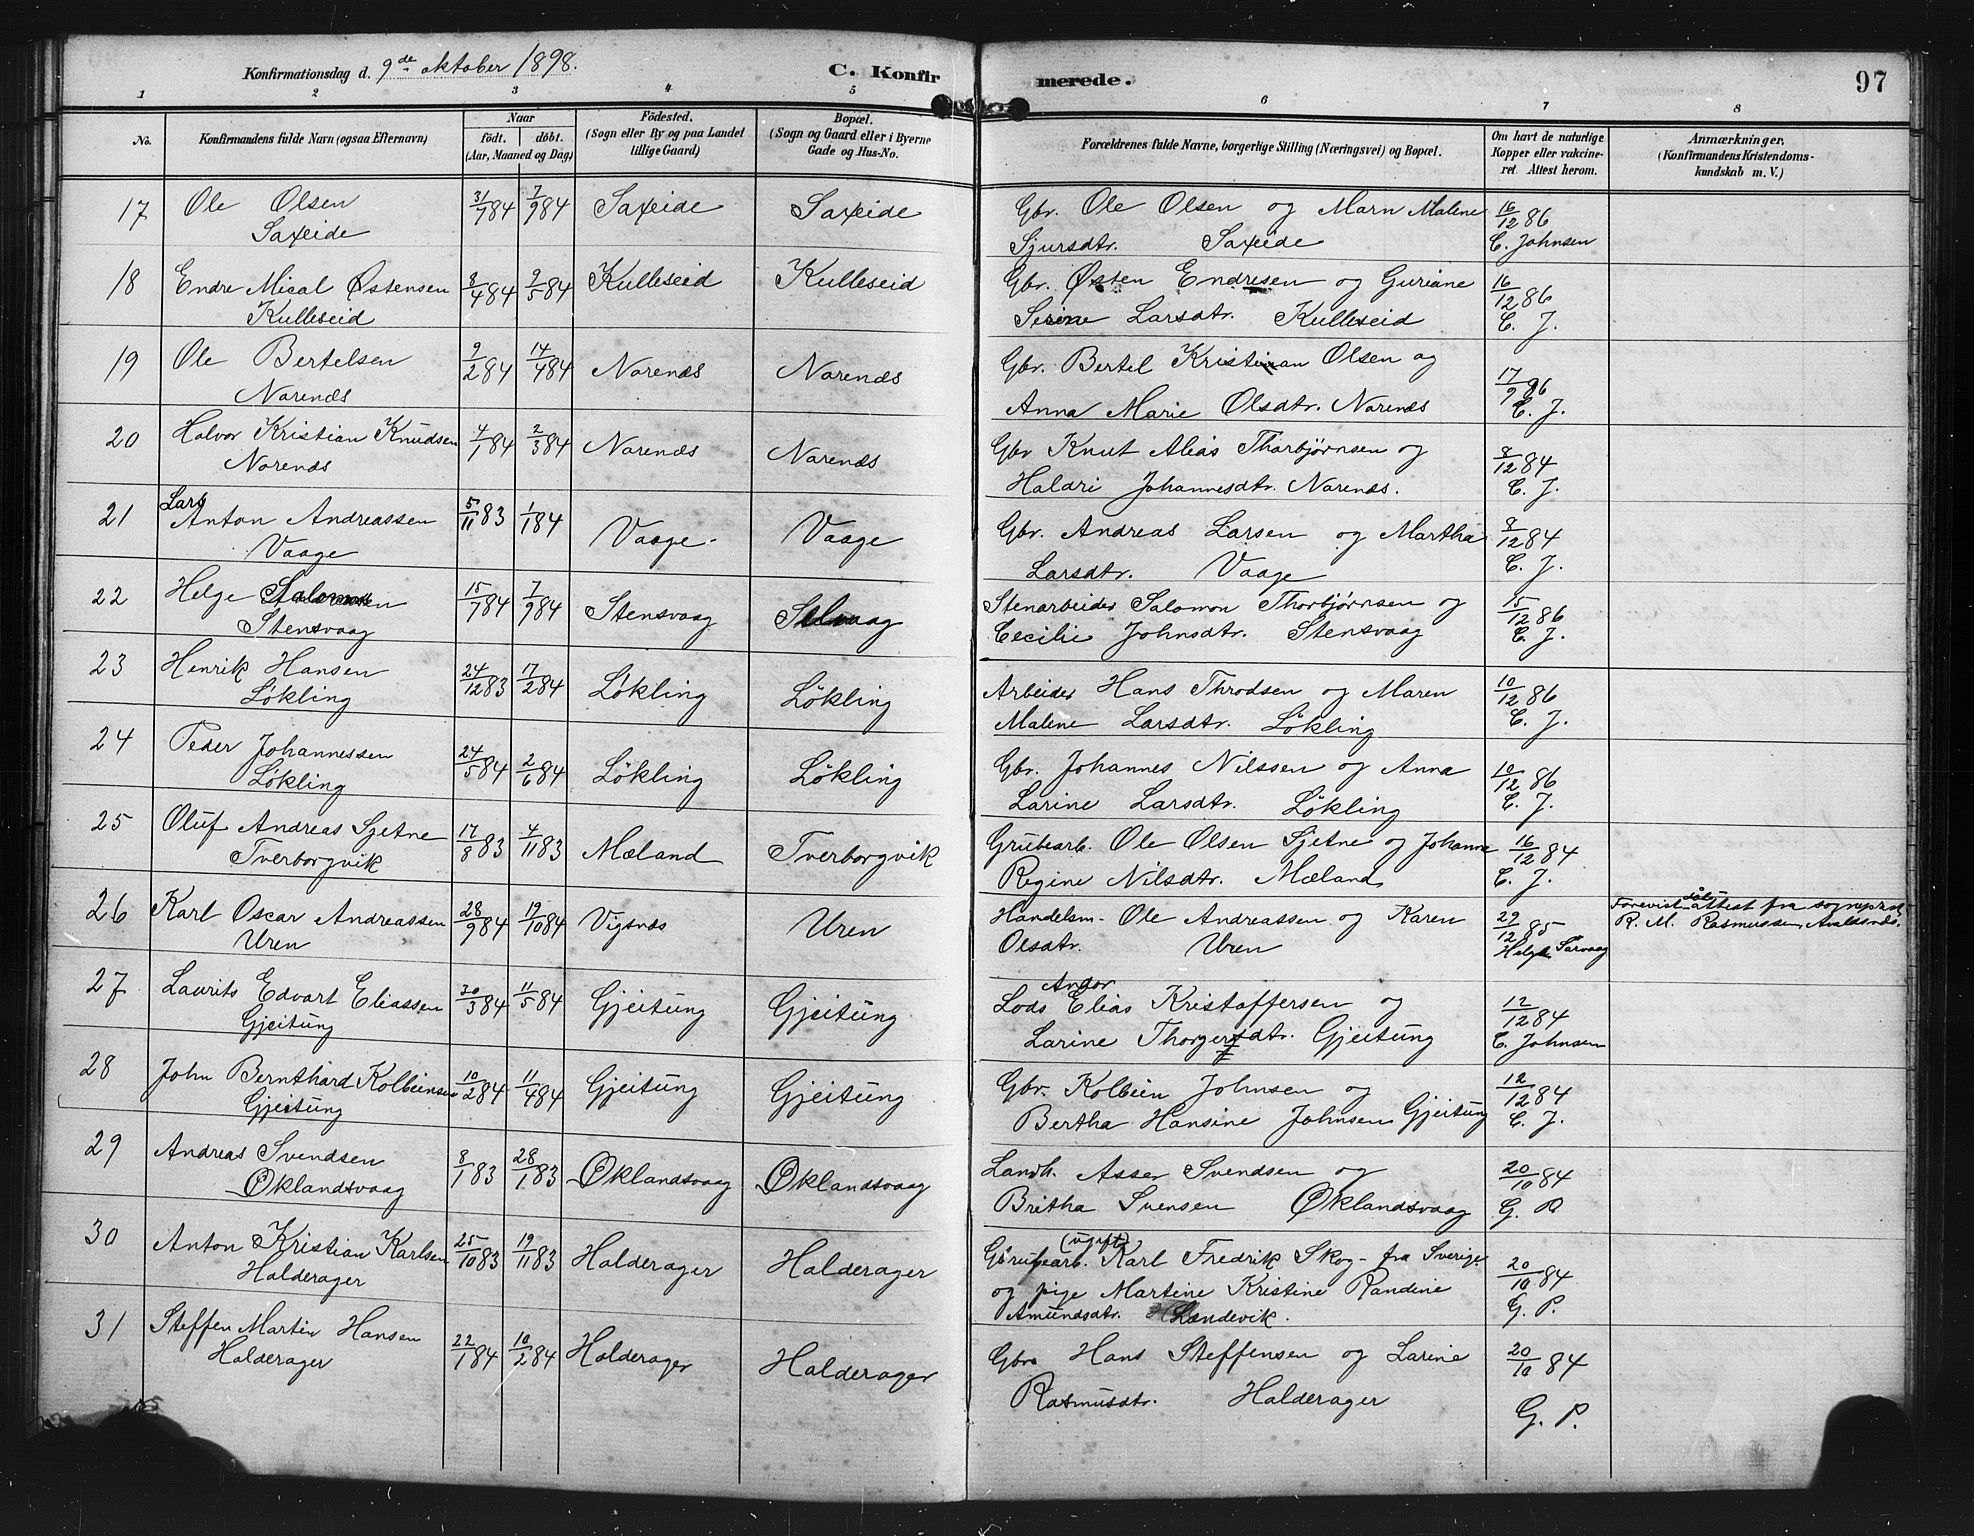 Konfirmationsdag d. 9de oktober 1898. C. Konfirmerede. 97
1 2 3 4 5 6 7 8
No. Konfirmandens fulde Navn (ogsaa Efternavn) Naar födt. döbt. (Aar, Maaned og Dag) Födested. (Sogn eller By og paa Landet tillige Gaard) Bopæl. (Sogn og Gaard eller i Byerne Gade og Hus-No. Forældrenes fulde Navne, borgerlige Stilling (Næringsvei) og Bopæl. Om havt de naturlige Kopper eller vakcineret. Attest herom. Anmærkninger. (Konfirmandens Kristendomskundskab m. V.)
17 Ole Olsen 31/7 84 7/9 84 Saxeide Saxeide Gbr. Ole Olsen og Marn Malene 16/12 86
Saxeide Sjursdtr. Saxeide C. Johnsen
18 Endre Mical Østensen 3/4 84 2/5 84 Kulleseid Kulleseid Gbr. Østen Endresen og Guriane 16/12 86
Kulleseid Serine Larsdtr. Kulleseid C. J.
19 Ole Bertelsen 9/2 84 14/4 84 Norenæs Norenæs Gbr. Bertel Kristian Olsen og 17/9 86
Norenæs Anna Marie Olsdtr. Norenæs C. J.
20 Halvor Kristian Knudsen 4/1 84 2/3 84 Norenæs Norenæs Gbr Knut Alias Thorbjørnsen og 8/12 84
Norenæs Haldri Johannesdtr. Norenæs. C. J.
21 Lars Anton Andreassen 5/11 83 1/1 84 Vaage Vaage Gbr. Andreas Larsen og Martha 8/12 84
Vaage Larsdtr. Vaage C. J.
22 Helge Salomonsen 15/7 84 7/9 84 Stensvaag Stenarbeider Salomon Thorbjørnsen og 15/12 86
Stensvaag Cecilie Johnsdtr. Stensvaag C. J.
23 Henrik Hansen 24/12 83 17/2 84 Løkling Løkling Arbeider Hans Throdsen og Maren 10/12 86
Løkling Malene Larsdtr. Løkling C. J.
24 Peder Johannessen 24/5 84 2/6 84 Løkling Løkling Gbr. Johannes Nilssen og Anna 10/12 86
Løkling Larine Larsdtr. Løkling C. J.
25 Oluf Andreas Sjetne 17/8 83 4/11 83 Mæland Tverborgvik Grubearb. Ole Olsen Sjetne og Johanne 16/12 84
Tverborgvik Regine Nilsdtr. Mæland C. J.
26 Karl Oscar Andreassen 28/9 84 19/10 84 Vigsnæs Uren Handelsm. Ole Andreassen og Karen 29/12 85 Forevist attest fra sognepræst
Uren Olsdtr. Uren Helge Sørvaag R. M. Rasmussen, Avaldsnæs.
27 Laurits Edvart Eliassen 30/3 84 11/5 84 Gjeitung Gjeitung Lods Andor Elias Kristoffersen og 12/12 84
Gjeitung Larine Thorgersdtr. Gjeitung C. Johnsen
28 John Bernthard Kolbeinsen 10/2 84 11/4 84 Gjeitung Gjeitung Gbr. Kolbein Johnsen og 12/12 84
Gjeitung Bertha Hansine Johnsen Gjeitung C. J.
29 Andreas Svendsen 8/1 83 28/1 83 Øklandsvaag Øklandsvaag Landh. Asser Svendsen og 20/10 84
Øklandsvaag Britha Svensen Øklandsvaag G. P.
30 Anton Kristian Karlsen 25/10 83 19/11 83 Halderager Halderager Grubearb. (ugift) Karl Fredrik Skog - fra Sverige 20/10 84
Halderager og pige Martine Kristine Randine G. P.
Amundsdtr. Landevik.
31 Steffen Martin Hansen 22/1 84 10/2 84 Halderager Halderager Gbr. Hans Steffensen og Larine 20/10 84
Halderager Rasmusdtr. Halderager G. P.